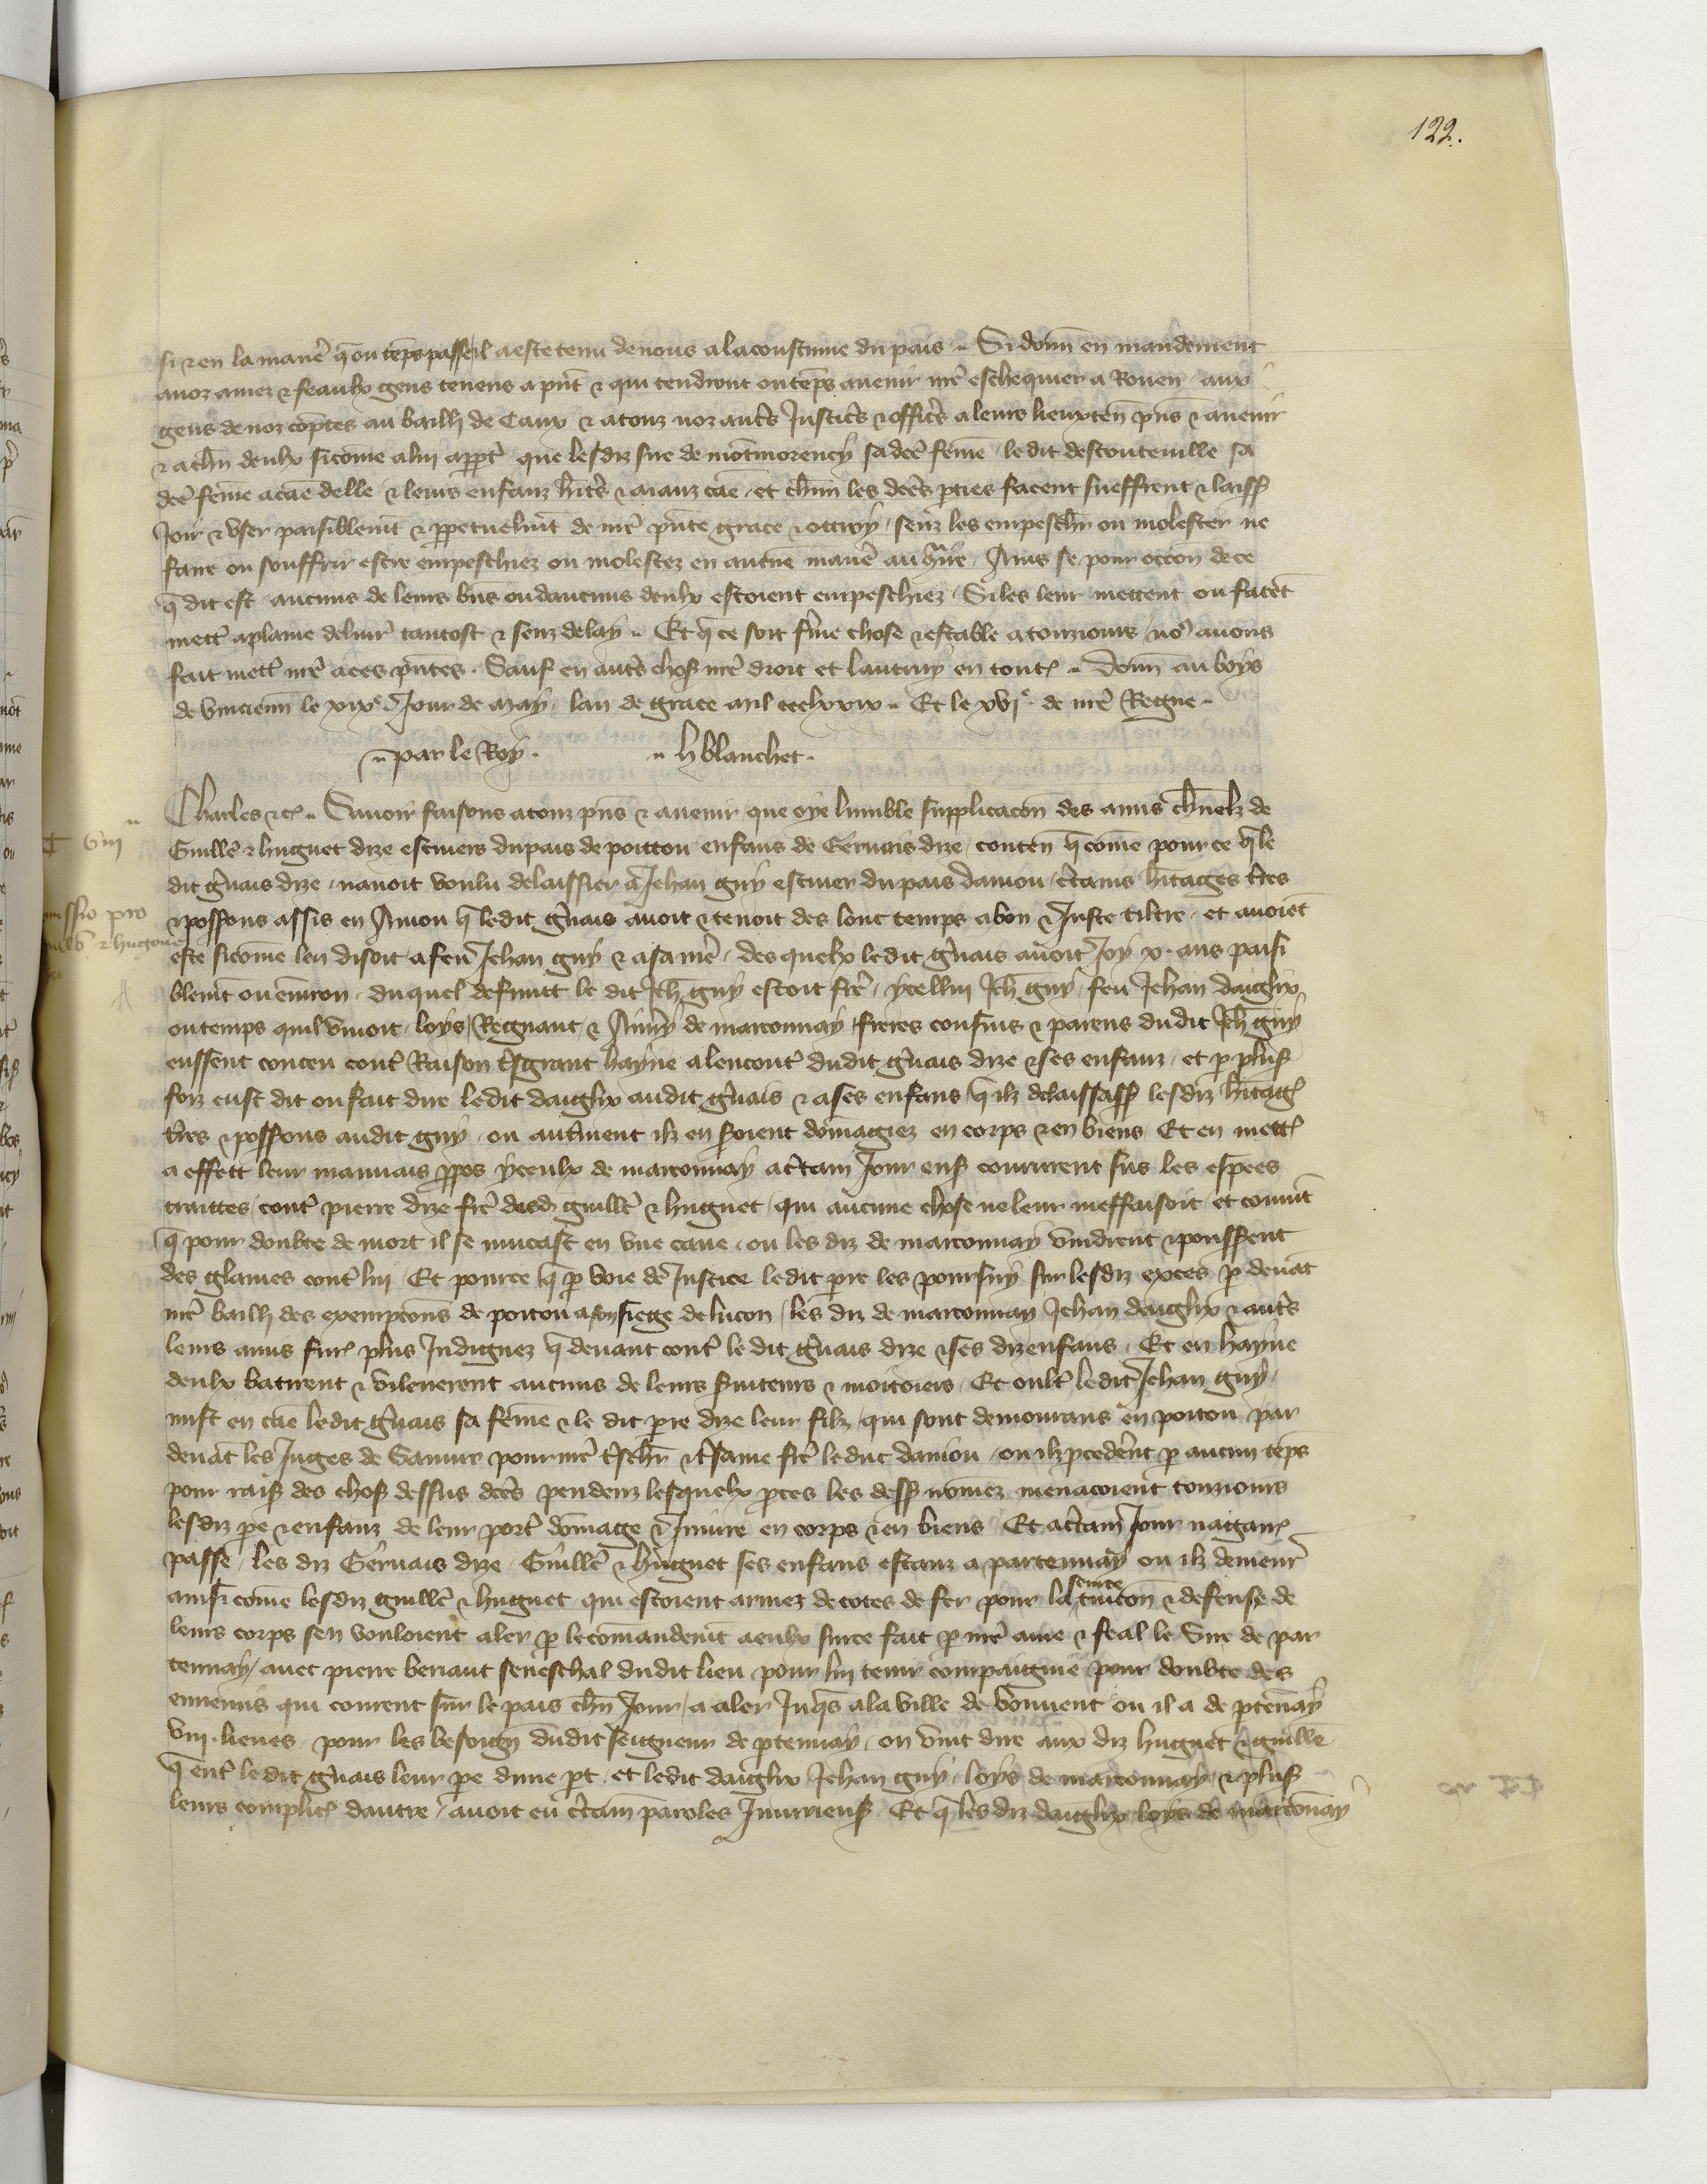 122.
si & en la maniere q̄ ou tēps passe il a este tenu de nous a la coustume du pais .. Si donn̄ en mandement
a noz amez & feaulx gens tenens a pn̄t & qui tendront ou tēps auenir nr̄e eschequier a Rouen / aux
gens de noz cōptes au bailli de Caux & a touz noz autr̄s Justic̄s & offic̄s a leurs lieuxten̄ pn̄s & auenir
& a chn̄ deulx sicōme a lui app̄t̄ que lesdiz sire de mōtmorency sa dc̄e feme / le dit destouteuille sa
dc̄e feme a cāe delle / & leurs enfanz hīts̄ & aianz cāe . et chn̄ les dc̄es pties facent sueffrent & laissent
Joir & vser paisiblemt̄ & ppetuelmt̄ de nr̄e pn̄te grace & ottroy / senz les empeschier ou molester ne
faire ou souffrir estre empeschiez ou molestez en aucūe manīe au cōtrāire . Ains se pour occōn de ce
q̄ dit est aucuns de leurs biens ou daucuns deulx estoient empeschiez . Si les leur mettent ou facēt
mett̄ a plaine deliur̄ tantost & senz delay .. Et q̄ ce soit ferme chose & estable a touziours / no9 auons
fait mett̄ nr̄e a ces pn̄tes . Sauf en autr̄s choses nr̄e droit et lautruy en toutes .. Donn̄ au boys
de vincienn̄ le xixe. Jour de may . lan de grace mil ccclxxix .. Et le xvje. de nr̄e Regne ..
.. par le Roy . .. h blanchet .
Charles &c .. Sauoir faisons a touz pn̄s & auenir que oye lumble supplicacōn des amis charnelz de
Guille & huguet dize escuiers du pais de poitou enfans de Geruais dize / conten̄ q̄ cōme pour ce q̄ le
dit gūais dize / nauoit voulu delaissier a Jehan guy escuier du pais daniou / cētains hitages tres
& possess̄ons assis en Aniou q̄ ledit gūais auoit & tenoit des lonc temps a bon & Juste tiltre . et auoiēt
este sicōme len disoit a feu Jehan guy & a sa mere . des quelx ledit gūais auoit Joy x. ans paisi
blemt̄ ou enuiron . du quel defunct le dit Jeh̄ guy estoit frē . ycellui Jeh̄ guy / feu Jehan daiglix
ou temps quil viuoit / loys Regnaut & Aimery de marconnay freres cousins & parens dudit Jeh̄ guy
eussent conceu cont̄ Raison tr̄sgrant hayne a lencont̄ dudit gūais dize & ses enfanz . et p plus̄
foiz eust dit ou fait dire ledit daiglix audit gūais & a ses enfans q̄ ilz delaissass̄ lesdiz hitages
tres & possess̄ons audit guy . ou autrement ilz en seroient dōmagiez en corps & en biens / Et en mett̄
a effect leur mauuais ppos yceulx de marconnay a cētain Jour eus̄ coururent sus les espees
traittes . cont̄ pierre dize frē desd̄ guille & huguet / qui aucune chose ne leur meffaisoit / et conuīt
q̄ pour doubte de mort il se mucast en vne caue . ou les diz de marconnay vindrent & poussent
des glaiues cont̄ lui . Et pour ce q̄ p voie de Justice ledit pre les poursuy sur lesdiz exces p deuāt
nr̄e bailli des exempcōns de poitou a son siege de lucon / les diz de marconnay Jehan daiglix & autr̄s
leurs amis fur̄ plus Indignez q̄ deuant cont̄ le dit gūais dize & ses diz enfans . Et en hayne
deulx batirent & vilenerent aucuns de leurs seruiteurs & moitoiers . Et oult̄ ledit Jehan guy /
mist en cāe ledit gūais sa fēme & le dit pre dize leur filz / qui sont demourans en poitou par
deuāt les Juges de Saumur pour nr̄e tr̄schr̄ & tr̄same frē le duc daniou . ou ilz pcederēt p aucun tēps
pour rais̄ des choses dessus dc̄es pendenz lesquelx pces les dess̄ nomez menacoient touziours
lesdiz pe & enfanz de leur port̄ dōmage & Iniure en corps & en biens . Et a cētain Jour naigaires
passe . les diz Geruais dize . Guille & huguet ses enfans estanz a partennay ou ilz demeur̄
ainsi cōme lesdiz guille & huguet qui estoient armez de cotes de fer pour la seurte tuicōn & defense de
leurs corps sen vouloient aler p le cōmandemt̄ a eulx sur ce fait p nr̄e ame & feal le Sire de par
tennay / auec pierre beriaut seneschal dudit lieu pour lui tenir compaignie pour doubte des
ennemis qui courent sur le pais chn̄ Jour / a aler Jusqs a la ville de vouuent ou il a de ptēnay
viij. lieues . pour les besoign̄ dudit seigneur de ptennay . on vint dire aux diz huguet & guille
q̄ ent̄ ledit gūais leur pe dune pt . et ledit daiglix Jehan guy . loys de marconnay & plus̄
leurs complices dautre . auoit eu cētain paroles Iniurieus̄ . Et q̄ les diz daiglix loys de marconnay